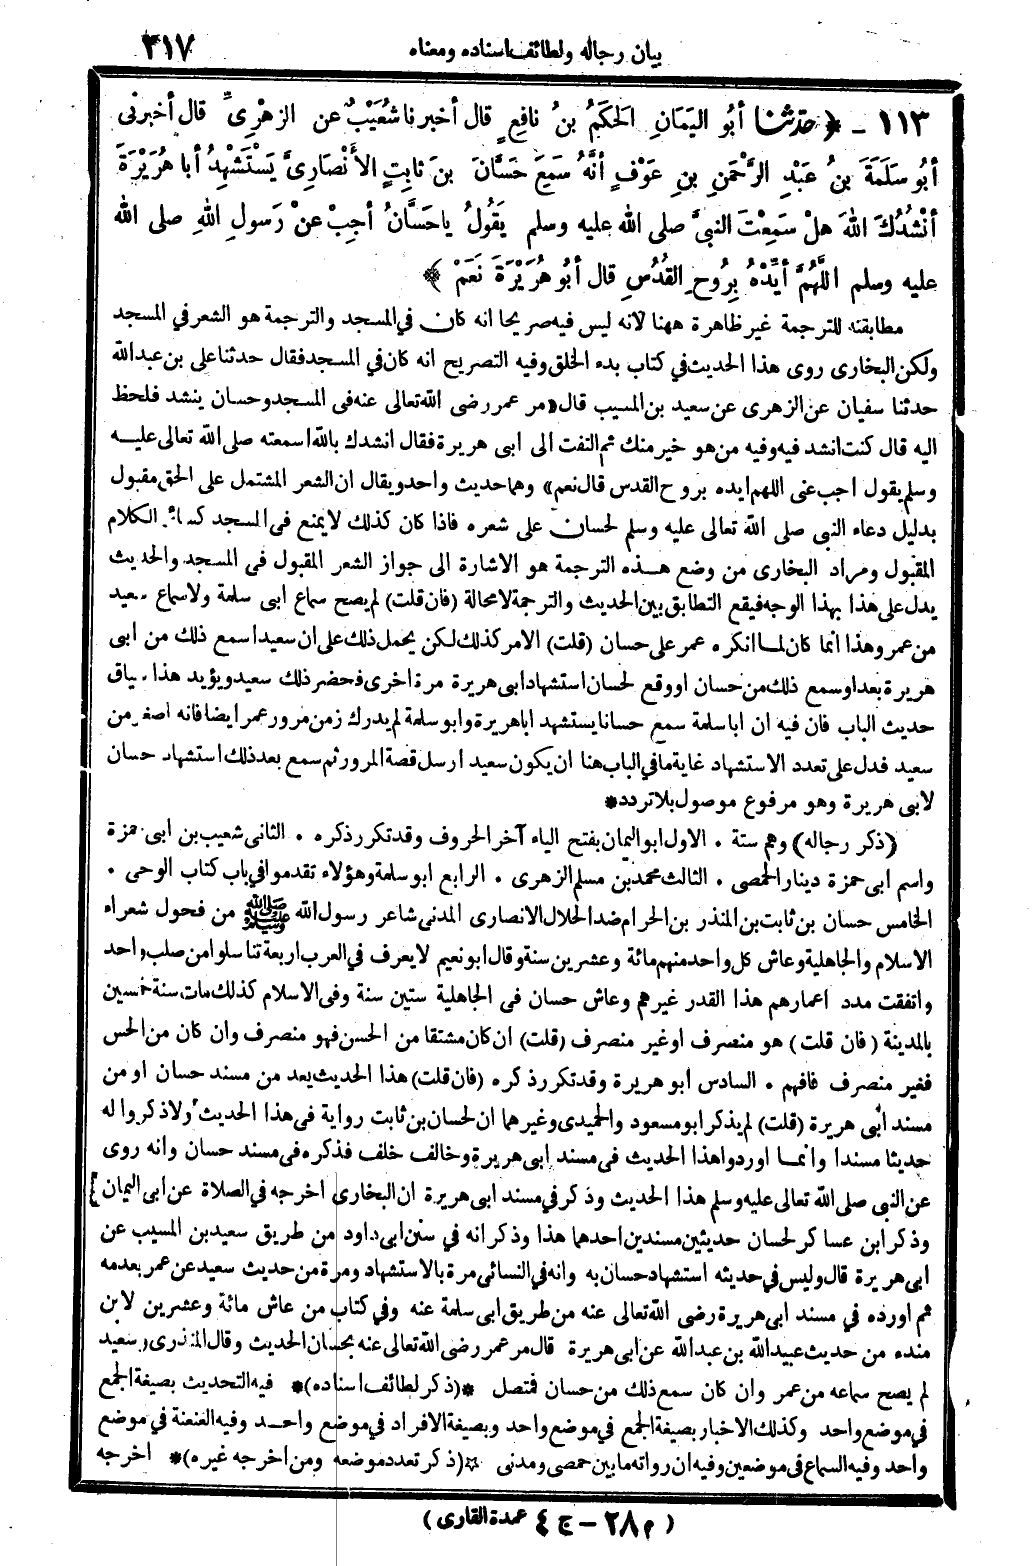 بيان رجاله ولطائف اسناده ومعناه ٢١٧
١١٣ - ﴿ حَدَّثَنَا أبُو اليَمَانِ الحَكَمُ بنُ نافِعٍ قال أخبرنا شُعَيْبٌ عن الزهْرِيِّ قال أخبرنى
أبُو سَلَمَةَ بنُ عَبْدِ الرَّحْمَنِ بنِ عَوْفٍ أنَّهُ سَمِعَ حَسَّانَ بنَ ثابِتٍ الأَنْصَارِىَّ يَسْتَشْهِدُ أبا هُرَيْرَةَ
أنْشُدُكَ اللهَ هلْ سَمِعْتَ النبىَّ صلى الله عليه وسلم يَقُولُ ياحَسَّانُ أجِبْ عنْ رَسولِ اللهِ صلى الله
عليه وسلم اللَّهُمَّ أيِّدْهُ بِرُوحِ القُدُسِ قال أبُو هُرَيْرَةَ نَعَمْ ﴾
مطابقته للترجمة غير ظاهرة ههنا لانه ليس فيه صريحا انه كان في المسجد والترجمة هو الشعر في المسجد
ولكن البخارى روى هذا الحديث في كتاب بدء الخلق وفيه التصريح انه كان في المسجد فقال حدثنا على بن عبد الله
حدثنا سفيان عن الزهرى عن سعيد بن المسيب قال «مر عمر رضى الله تعالى عنه فى المسجد وحسان ينشد فلحظ
اليه قال كنت انشد فيه وفيه من هو خير منك ثم التفت الى ابى هريرة فقال انشدك بالله اسمعته صلى الله تعالى عليه
وسلم يقول اجب عنى اللهم ايده بروح القدس قال نعم» وهما حديث واحد ويقال ان الشعر المشتمل على الحق مقبول
بدليل دعاء النبى صلى الله تعالى عليه وسلم لحسان على شعره فاذا كان كذلك لا يمنع فى المسجد كسائر الكلام
المقبول ومراد البخارى من وضع هذه الترجمة هو الاشارة الى جواز الشعر المقبول فى المسجد والحديث
يدل على هذا بهذا الوجه فيقع التطابق بين الحديث والترجمة لامحالة (فان قلت) لم يصح سماع ابى سلمة ولا سماع سعيد
من عمر وهذا انما كان لما انكره عمر على حسان (قلت) الامر كذلك لكن يحمل ذلك على ان سعيدا سمع ذلك من ابى
هريرة بعد او سمع ذلك من حسان او وقع لحسان استشهاد ابى هريرة مرة اخرى فحضر ذلك سعيد ويؤيد هذا سياق
حديث الباب فان فيه ان ابا سلمة سمع حسانا يستشهد ابا هريرة وابو سلمة لم يدرك زمن مرور عمر ايضا فانه اصغر من
سعيد فدل على تعدد الاستشهاد غاية مافي الباب هنا ان يكون سعيد ارسل قصة المرور ثم سمع بعد ذلك استشهاد حسان
لابى هريرة وهو مرفوع موصول بلا تردد*
(ذكر رجاله) وهم ستة . الاول ابو اليمان بفتح الياء آخر الحروف وقد تكرر ذكره . الثانى شعيب بن ابى حمزة
واسم ابى حمزة دينار الحمصى . الثالث محمد بن مسلم الزهرى . الرابع ابو سلمة وهؤلاء تقدموا في باب كتاب الوحى .
الخامس حسان بن ثابت بن المنذر بن الحرام ضد الحلال الانصارى المدنى شاعر رسول الله ﷺ من فحول شعراء
الاسلام والجاهلية وعاش كل واحد منهم مائة وعشرين سنة وقال ابو نعيم لا يعرف في العرب اربعة تناسلوا من صلب واحد
واتفقت مدد اعمارهم هذا القدر غيرهم وعاش حسان فى الجاهلية ستين سنة وفى الاسلام كذلك مات سنة خمسين
بالمدينة (فان قلت) هو منصرف او غير منصرف (قلت) ان كان مشتقا من الحسن فهو منصرف وان كان من الحس
فغير منصرف فافهم . السادس ابو هريرة وقد تكرر ذكره (فان قلت) هذا الحديث يعد من مسند حسان او من
مسند ابى هريرة (قلت) لم يذكر ابو مسعود والحميدى وغيرهما ان لحسان بن ثابت رواية فى هذا الحديث ولا ذكروا له
حديثا مسندا وانما اوردوا هذا الحديث فى مسند ابى هريرة وخالف خلف فذكره فى مسند حسان وانه روى
عن النبى صلى الله تعالى عليه وسلم هذا الحديث وذكر في مسند ابى هريرة ان البخارى اخرجه في الصلاة عن ابى اليمان
وذكر ابن عساكر لحسان حديثين مسندين احدهما هذا وذكر انه في سنن ابى داود من طريق سعيد بن المسيب عن
ابى هريرة قال وليس في حديثه استشهاد حسان به وانه في النسائى مرة بالاستشهاد ومرة من حديث سعيد عن عمر بعدمه
ثم اورده في مسند ابى هريرة رضى الله تعالى عنه من طريق ابى سلمة عنه وفي كتاب من عاش مائة وعشرين لابن
منده من حديث عبيد الله بن عبد الله عن ابى هريرة قال مر عمر رضى الله تعالى عنه بحسان الحديث وقال المنذرى وسعيد
لم يصح سماعه من عمر وان كان سمع ذلك من حسان فمتصل *(ذكر لطائف اسناده)* فيه التحديث بصيغة الجمع
في موضع واحد وكذلك الاخبار بصيغة الجمع في موضع واحد وبصيغة الافراد في موضع واحد وفيه العنعنة في موضع
واحد وفيه السماع فى موضعين وفيه ان رواته ما بين حمصى ومدنى ☆(ذكر تعدد موضعه ومن اخرجه غيره)* اخرجه
(م ٢٨ - ج ٤ عمدة القارى)